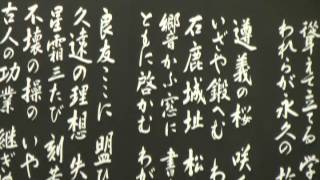 聳え立てる学
われらが永久の
遵義の桜 咲
いざや鍛へむ わ
石鹿城址 松
響かふ窓に 書
ともに啓かむ わが
良友ここに 盟ひ
久遠の理想 失
星霜三たび 刻苦
不壊の操の いや
古人の功業 継ぎ